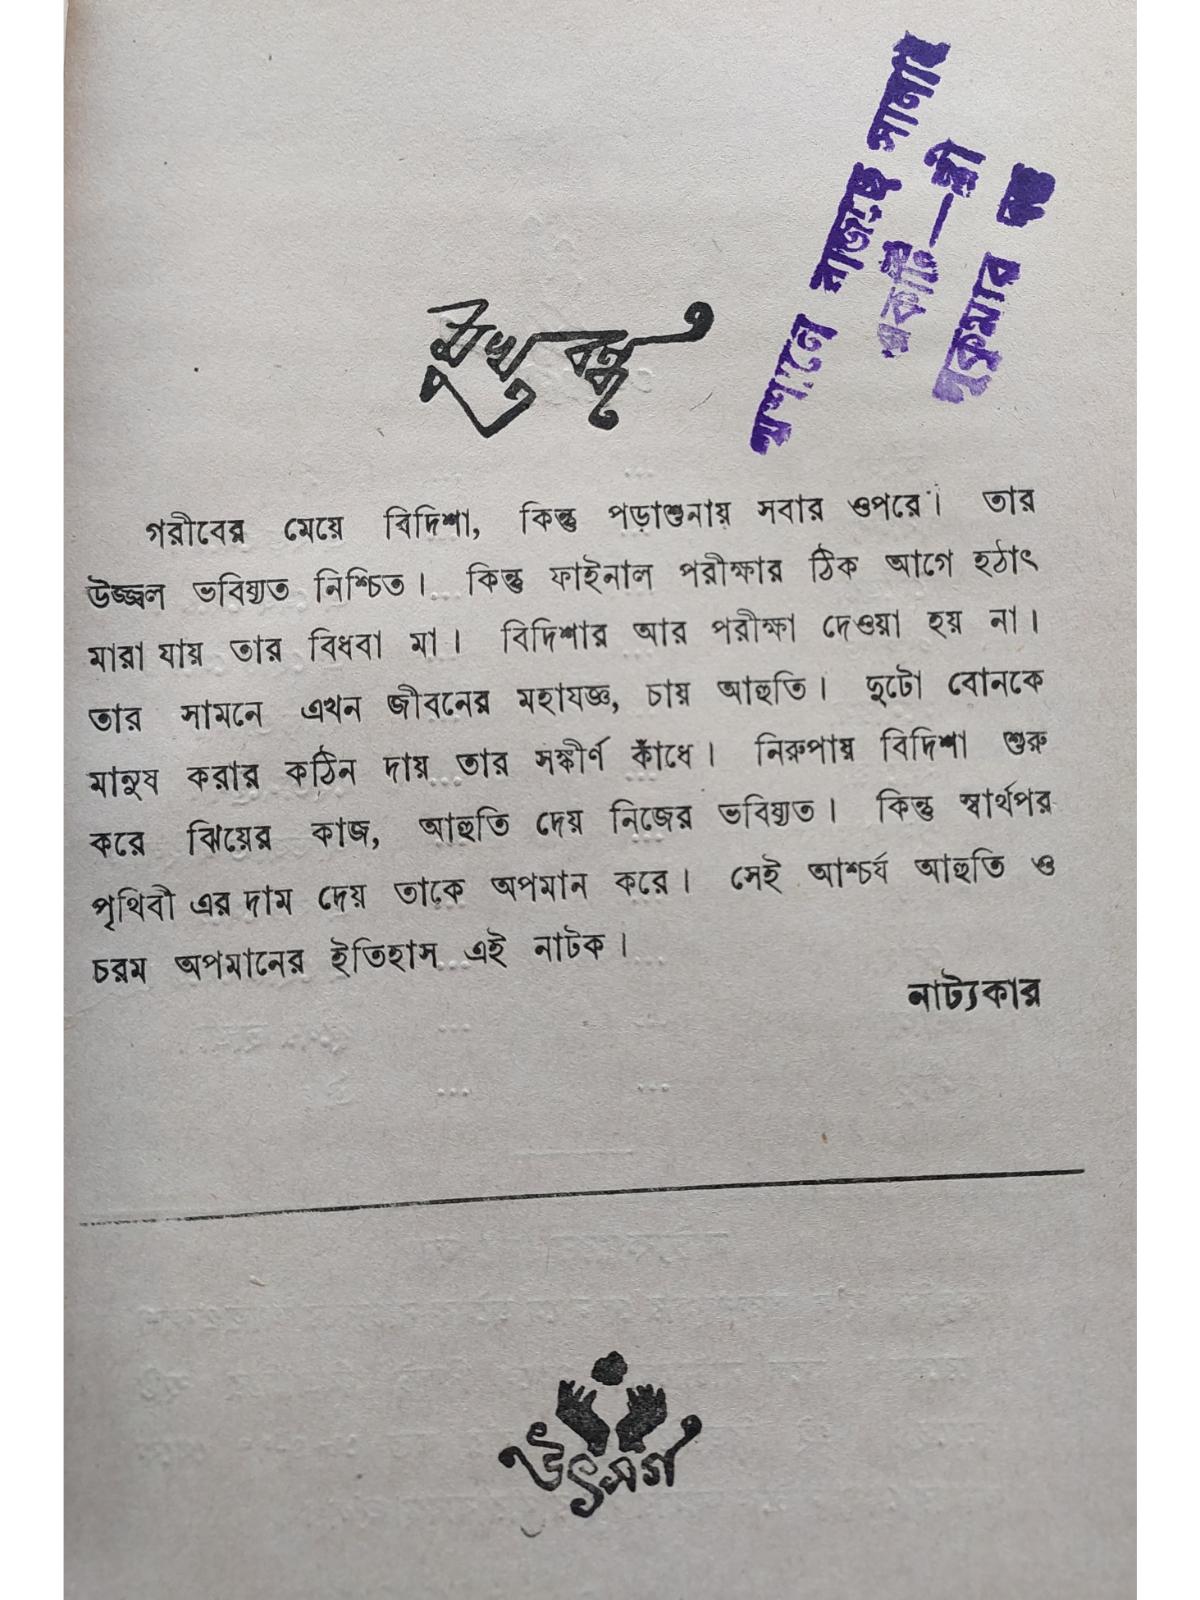 মুখবন্ধ
গরীবের মেয়ে বিদিশা, কিন্তু পড়াশুনায় সবার ওপরে। তার
উজ্জ্বল ভবিষ্যত নিশ্চিত। কিন্তু ফাইনাল পরীক্ষার ঠিক আগে হঠাৎ
মারা যায় তার বিধবা মা। বিদিশার আর পরীক্ষা দেওয়া হয় না।
তার সামনে এখন জীবনের মহাযজ্ঞ, চায় আহুতি। দুটো বোনকে
মানুষ করার কঠিন দায় তার সঙ্কীর্ণ কাঁধে। নিরুপায় বিদিশা শুরু
করে ঝিয়ের কাজ, আহুতি দেয় নিজের ভবিষ্যত। কিন্তু স্বার্থপর
পৃথিবী এর দাম দেয় তাকে অপমান করে। সেই আশ্চর্য আহুতি ও
চরম অপমানের ইতিহাস এই নাটক।
নাট্যকার
উৎসর্গ